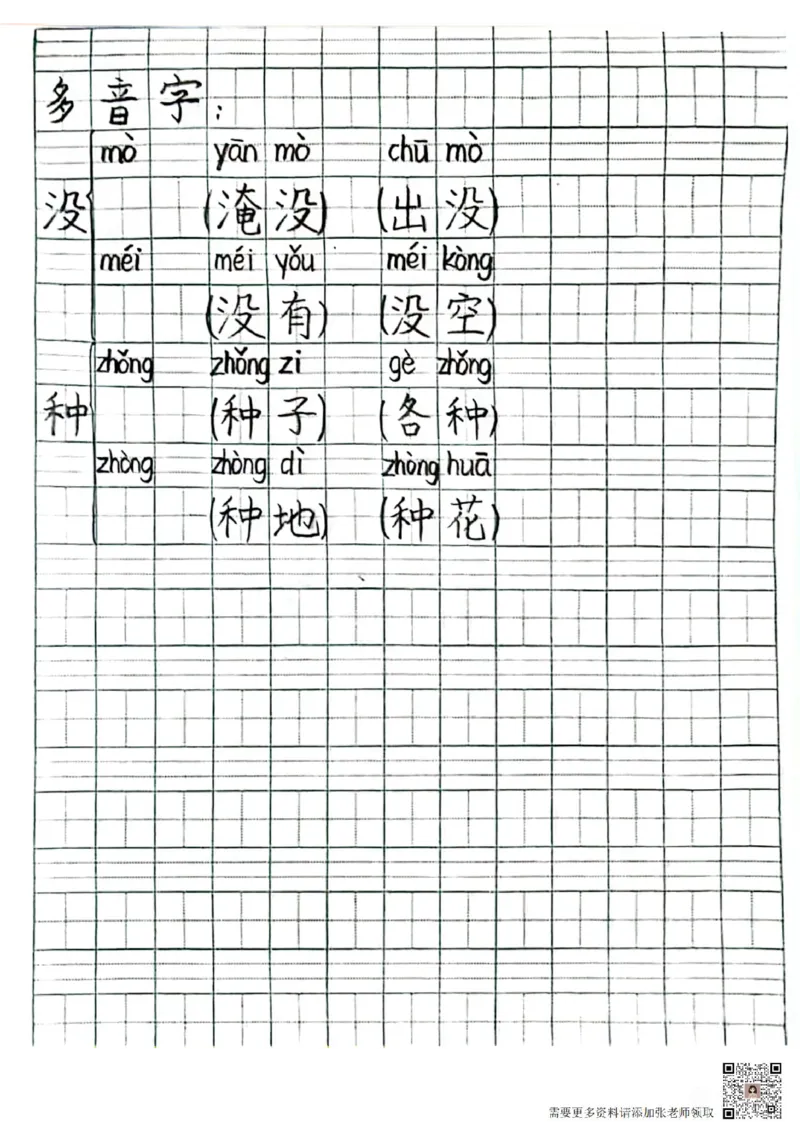 多音字：
mò yān mò chū mò
没 (淹没) (出没)
méi méi yǒu méi kòng
(没有) (没空)
zhǒng zhǒng zi gè zhǒng
种 (种子) (各种)
zhòng zhòng dì zhòng huā
(种地) (种花)
需要更多资料请添加张老师领取